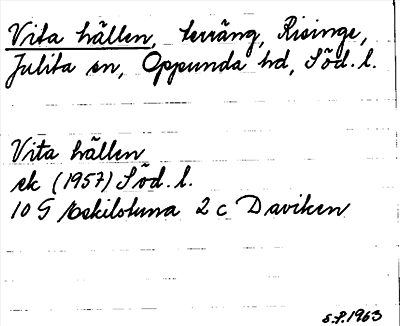 Vita hällen, terräng, Risinge,
Julita sn, Oppunda hd, Söd. l.
Vita hällen
ek (1957) Söd. l.
10 G Eskilstuna 2 c Daviken
S.P. 1963